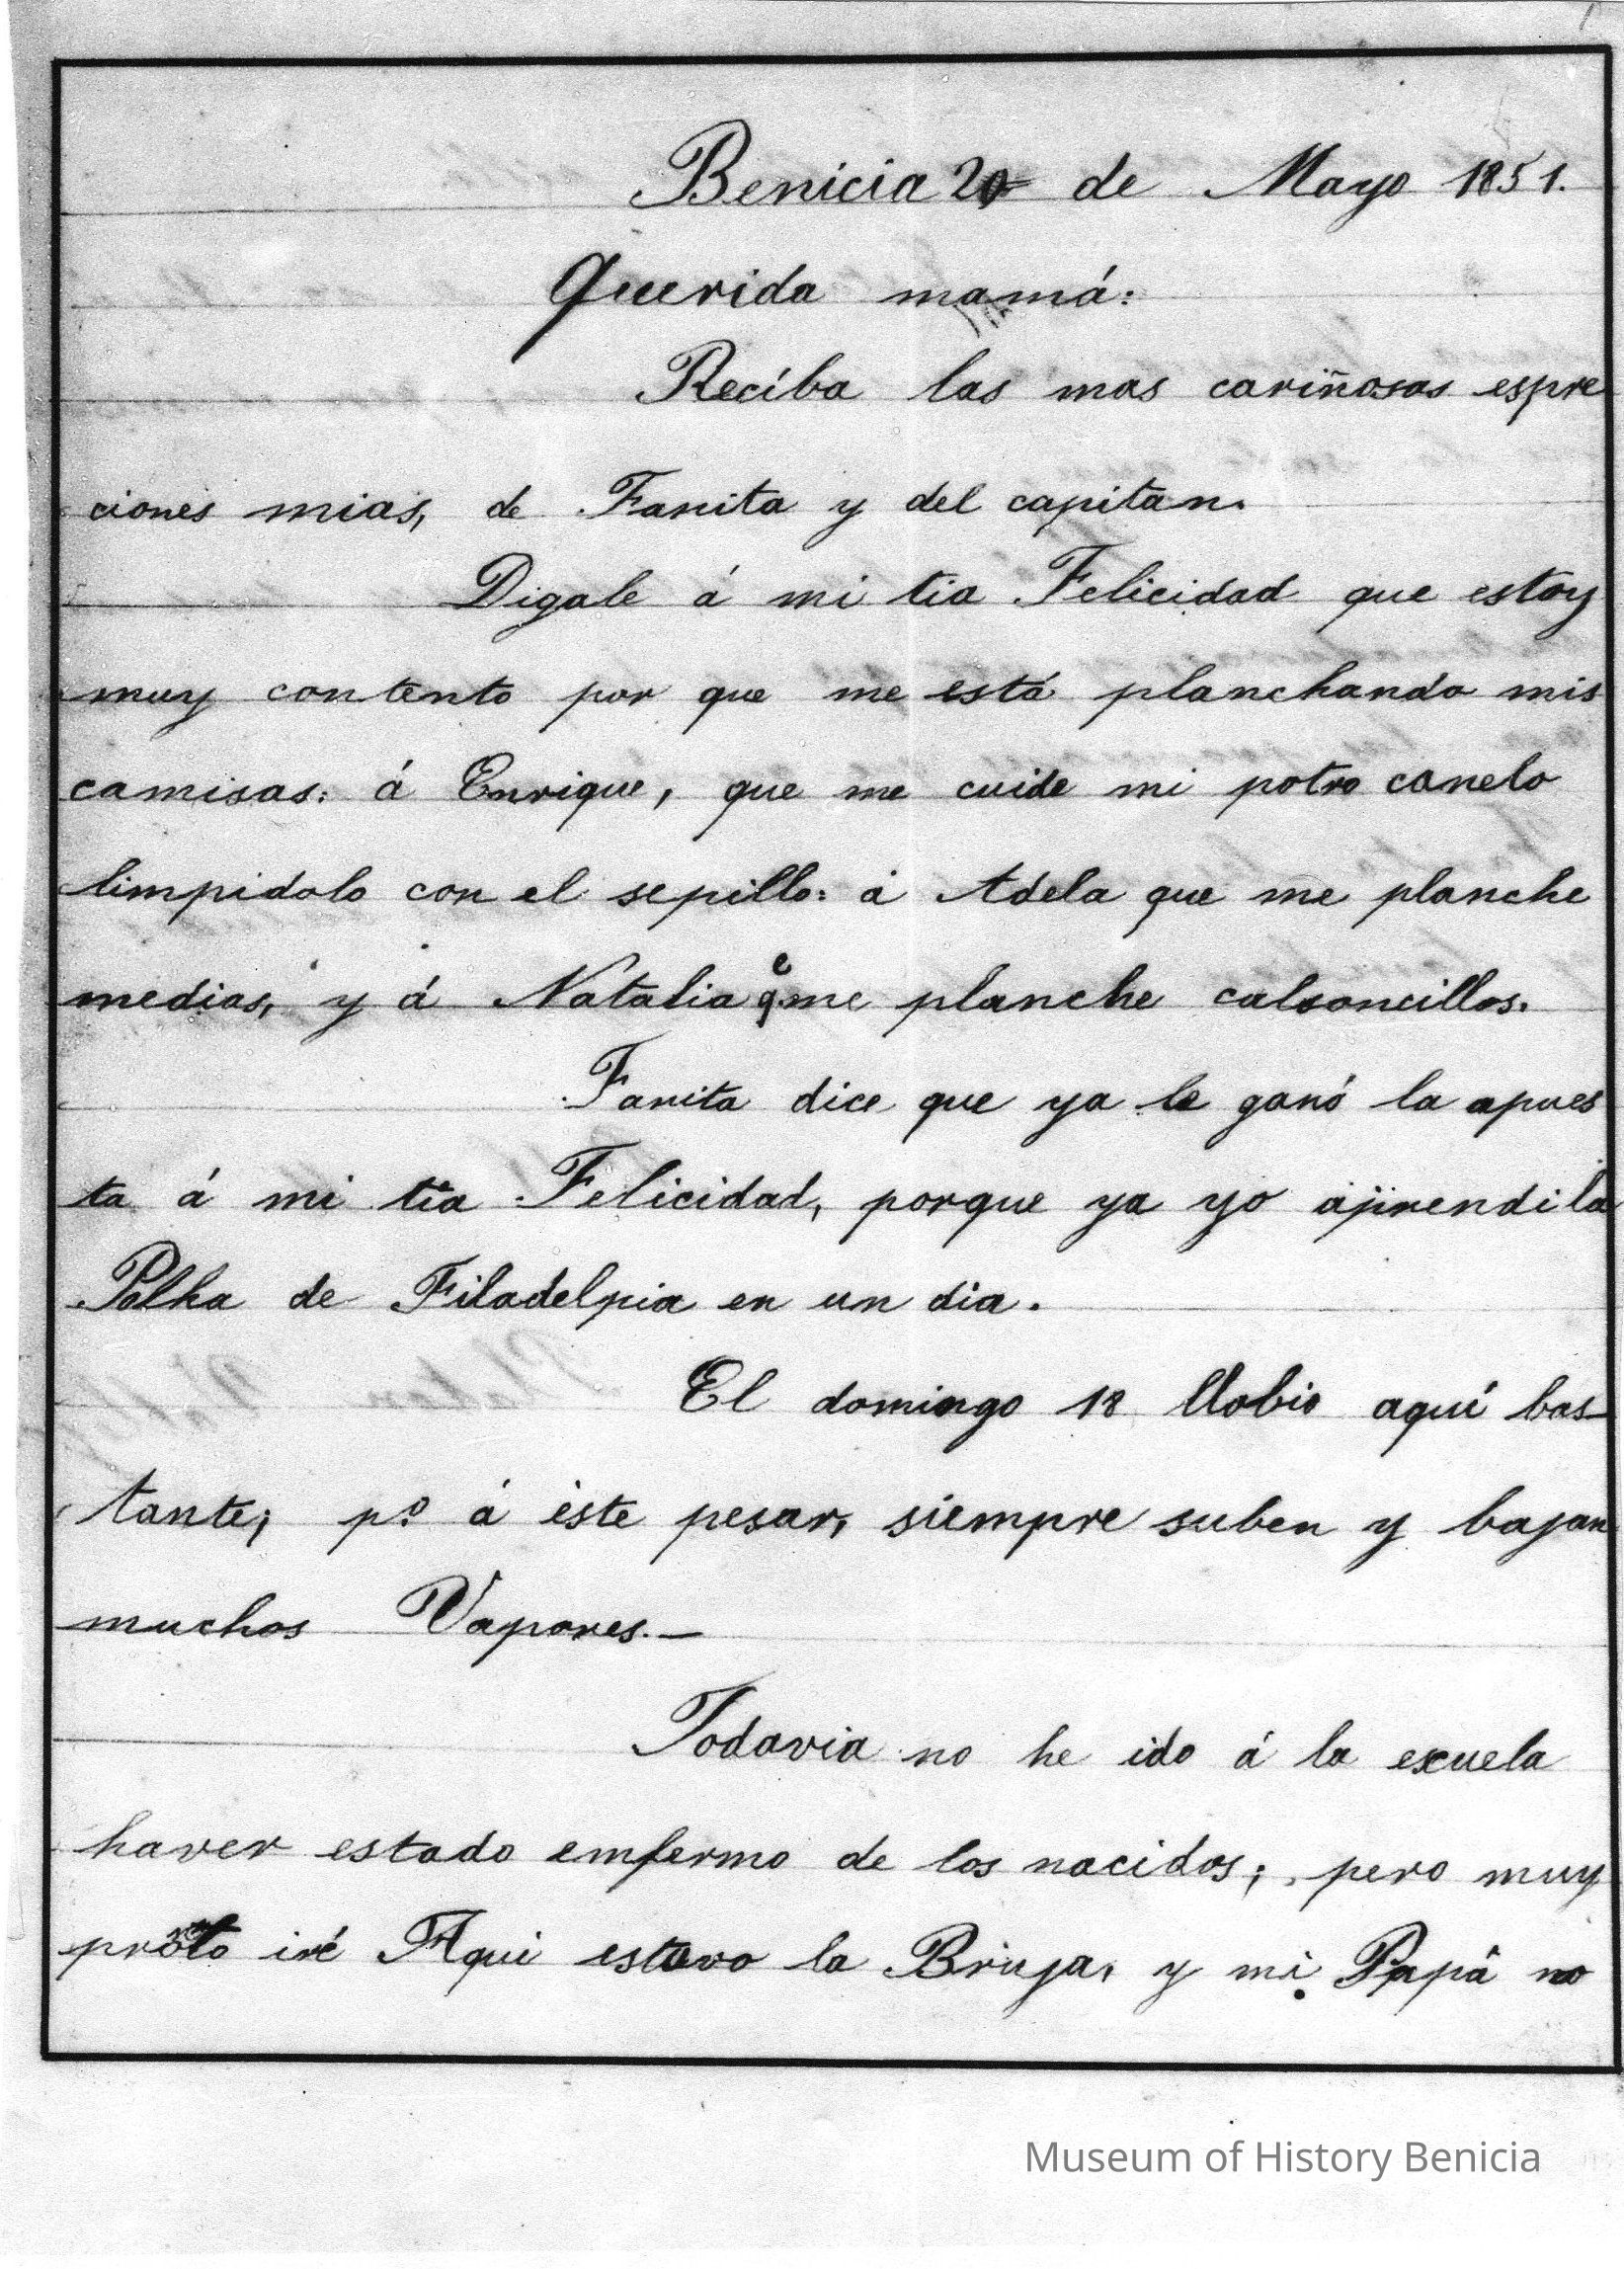 Benicia 20 de Mayo 1851.
Querida mamá:
Recíba las mas cariñosas espre
ciones mias, de Fanita y del capitan.
Digale á mi tia Felicidad que estoy
muy contento por que me está planchando mis
camisas: á Enrique, que me cuide mi potro canelo
limpidolo con el sepillo: á Adela que me planche
medias, y á Natalia qe me planche calsoncillos.
Fanita dice que ya le ganó la apues
ta á mi tia Felicidad, porque ya yo aprendi la
Polka de Filadelpia en un dia.
El domingo 18 llobio aquí bas-
tante; po. á èste pesar, siempre suben y bajan
muchos Vapores.-
Todavia no he ido á la escuela
haver estado emfermo de los nacidos; pero muy
proto iré Aqui estuvo la Bruja, y mi Papá no
Museum of History Benicia